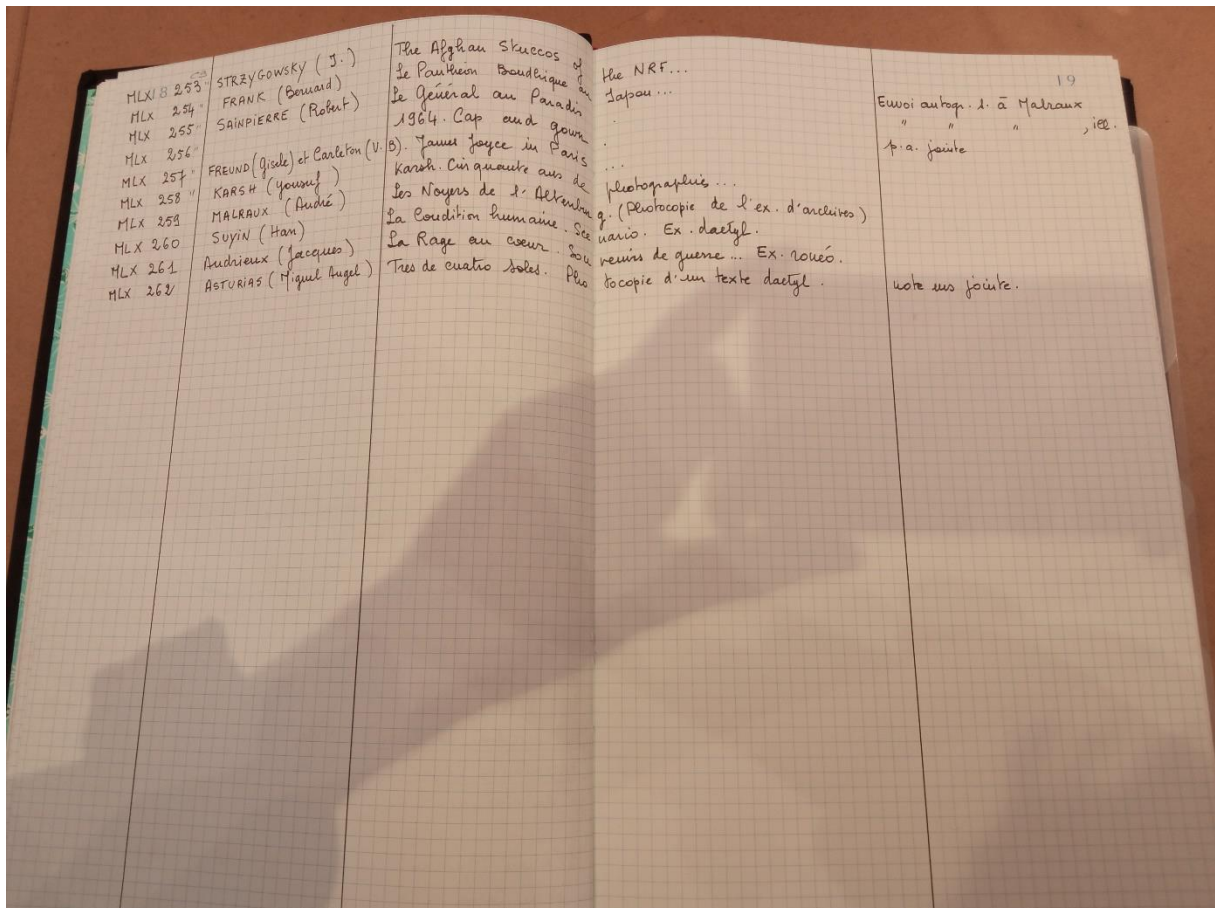 19
MLX 8 253 " STRZYGOWSKY (J.) The Afghan Stuccos of the NRF...
MLX 254 " FRANK (Bernard) Le Panthéon Bouddhique au Japon... Envoi autogr. s. à Malraux
MLX 255 " SAINPIERRE (Robert) Le Général au Paradis. " " " ,
MLX 256 " 1964. Cap and gown. p.a. jointe
MLX 257 " FREUND (Gisele) et Carleton (V.B). James Joyce in Paris ...
MLX 258 " KARSH (Yousuf) Karsh. Cinquante ans de photographies...
MLX 259 MALRAUX (André) Les Noyers de l'Altenburg. (Photocopie de l'ex. d'archives)
MLX 260 SUYIN (Han) La Condition humaine. Scenario. Ex. dactyl.
MLX 261 Andrieux (Jacques) La Rage au coeur. Souvenirs de guerre... Ex. ronéo.
MLX 262 ASTURIAS (Miguel Angel) Tres de cuatro soles. Photocopie d'un texte dactyl. note ms jointe.